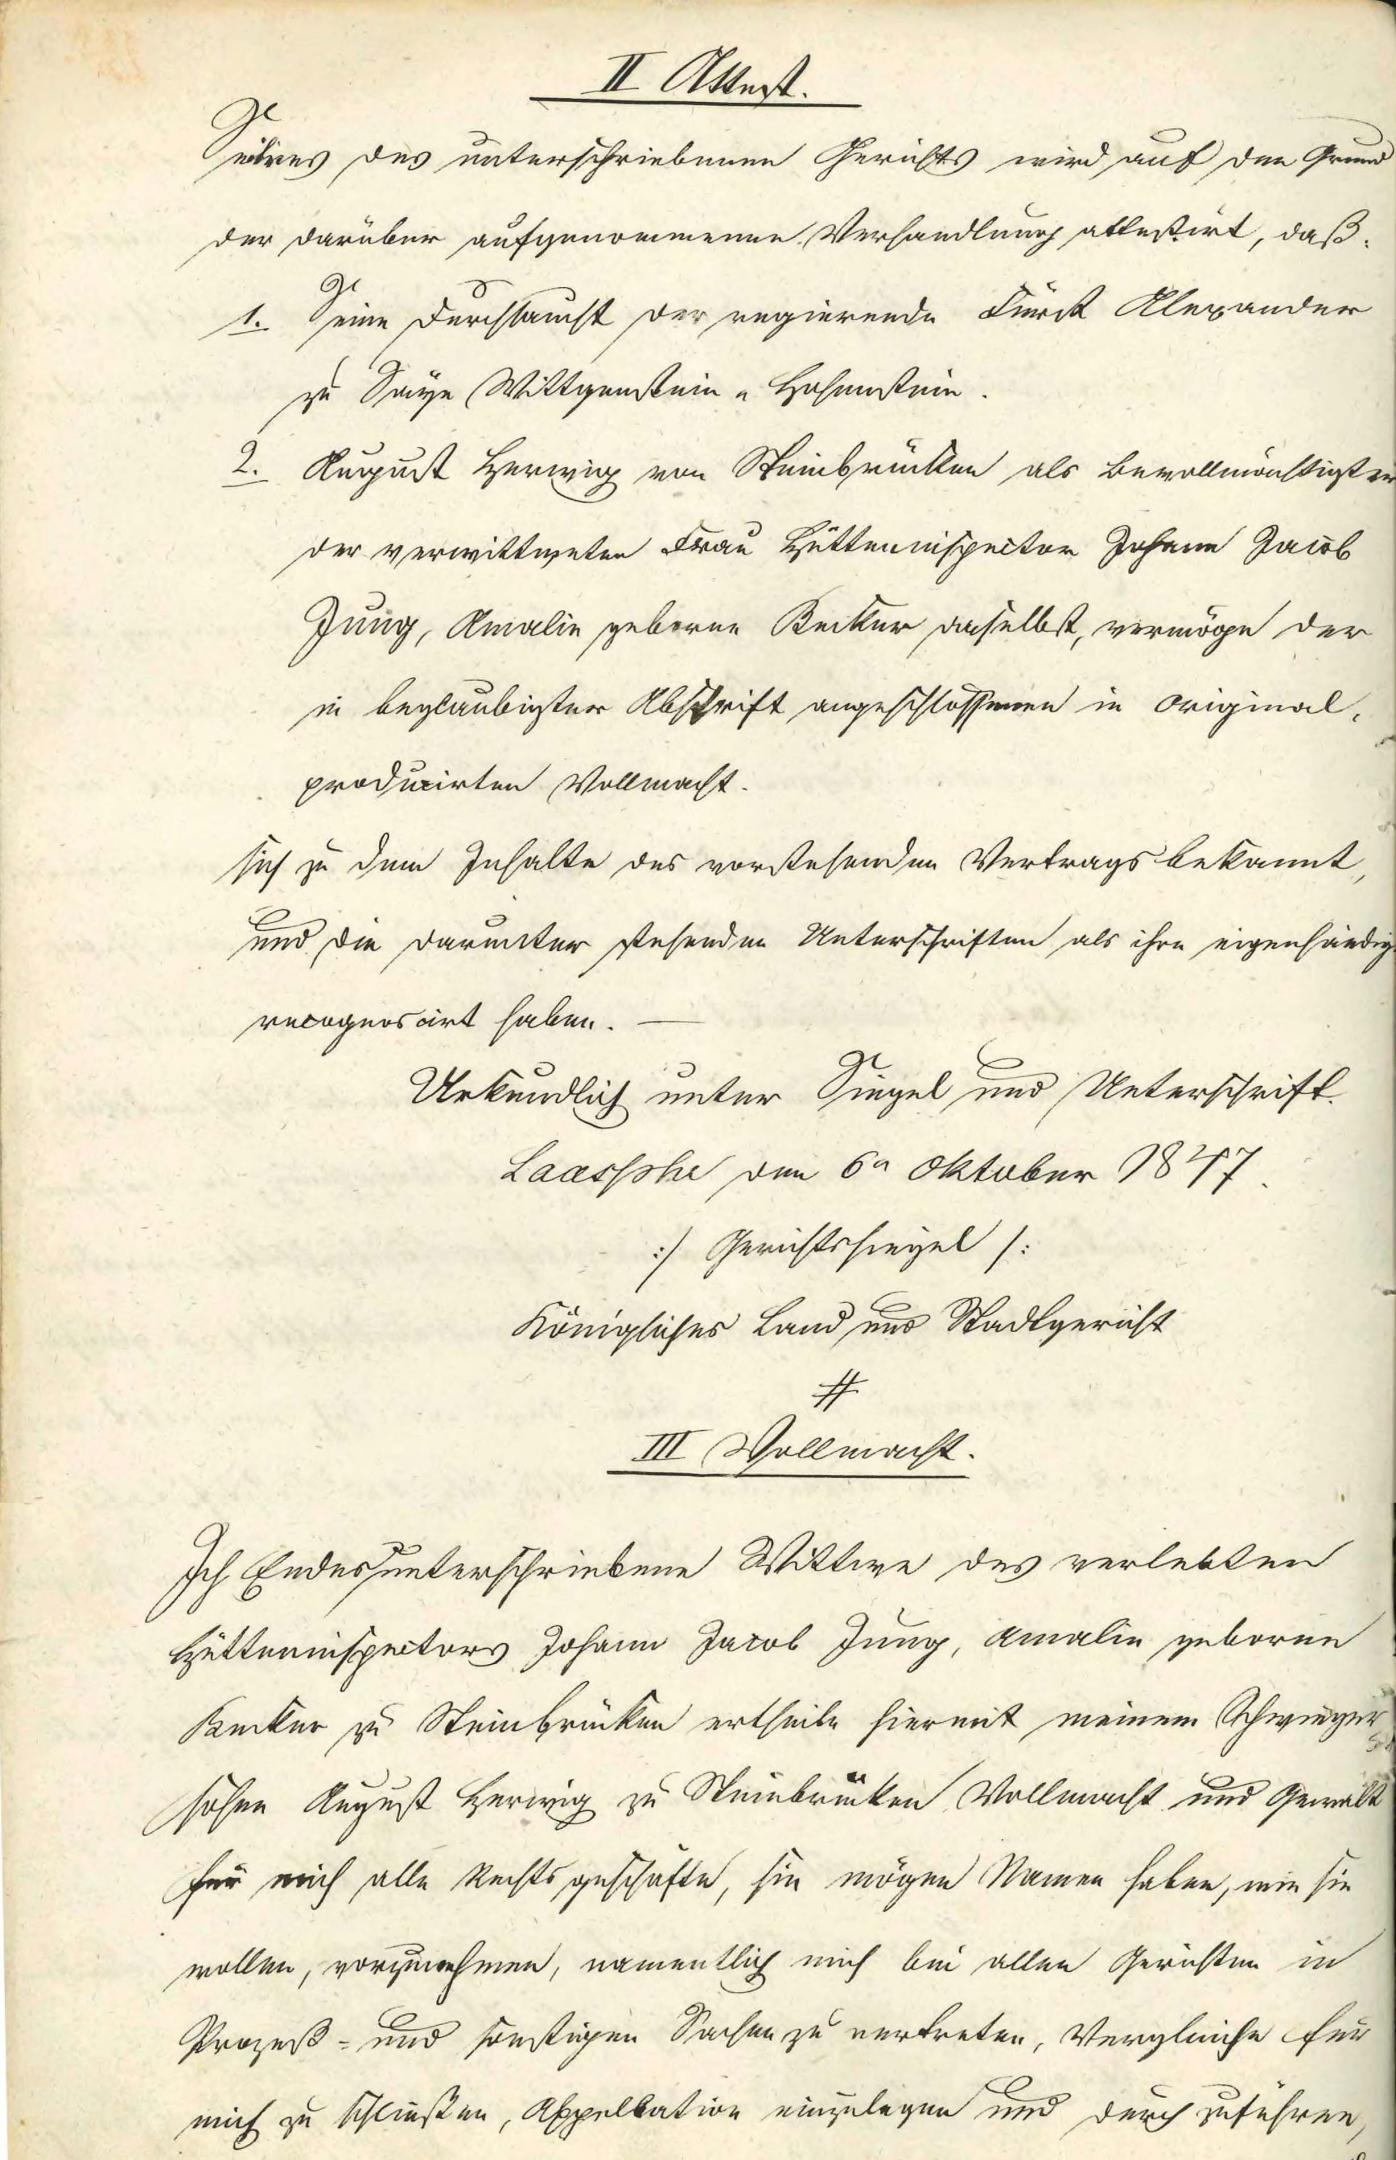 II Attest.
Seitens des unterschriebenen Gerichts wird auf den Grund
der darüber aufgenommenen Verhandlung attestirt, daß.
1. Seine Durchlaucht der regierende Fürst Alexander
zu Sayn Wittgenstein - Hohenstein.
2. August Herwig von Steinbrücken als Bevollmächtigter
der verwittweten Frau Hütteninspector Johann Jacob
Jung, Amalie geborne Becker daselbst, vermöge der
in beglaubigter Abschrift angeschlossenen in Original
producirten Vollmacht.
sich zu dem Inhalte des vorstehenden Vertrags bekannt,
und die darunter stehenden Unterschriften als ihre eigenhändig
recognoscirt haben. —
Urkundlich unter Siegel und Unterschrift.
Laasphe den 6n Oktober 1847.
:/ Gerichtssiegel /:
Königliches Land und Stadtgericht
#
III Vollmacht.
Ich Endesunterschriebene Wittwe des verlebten
Hütteninspectors Johann Jacob Jung, Amalie geborne
Becker zu Steinbrücken ertheile hiermit meinem Schwieger
sohne August Herwig zu Steinbrücken Vollmacht und Gewalt
für mich alle Rechtsgeschäfte, sie mögen Namen haben, wie sie
wollen, vorzunehmen, namentlich mich bei allen Gerichten in
Prozeß- und sonstigen Sachen zu vertreten, Vergleiche für
mich zu schließen, Appellation einzulegen und durchzuführen,